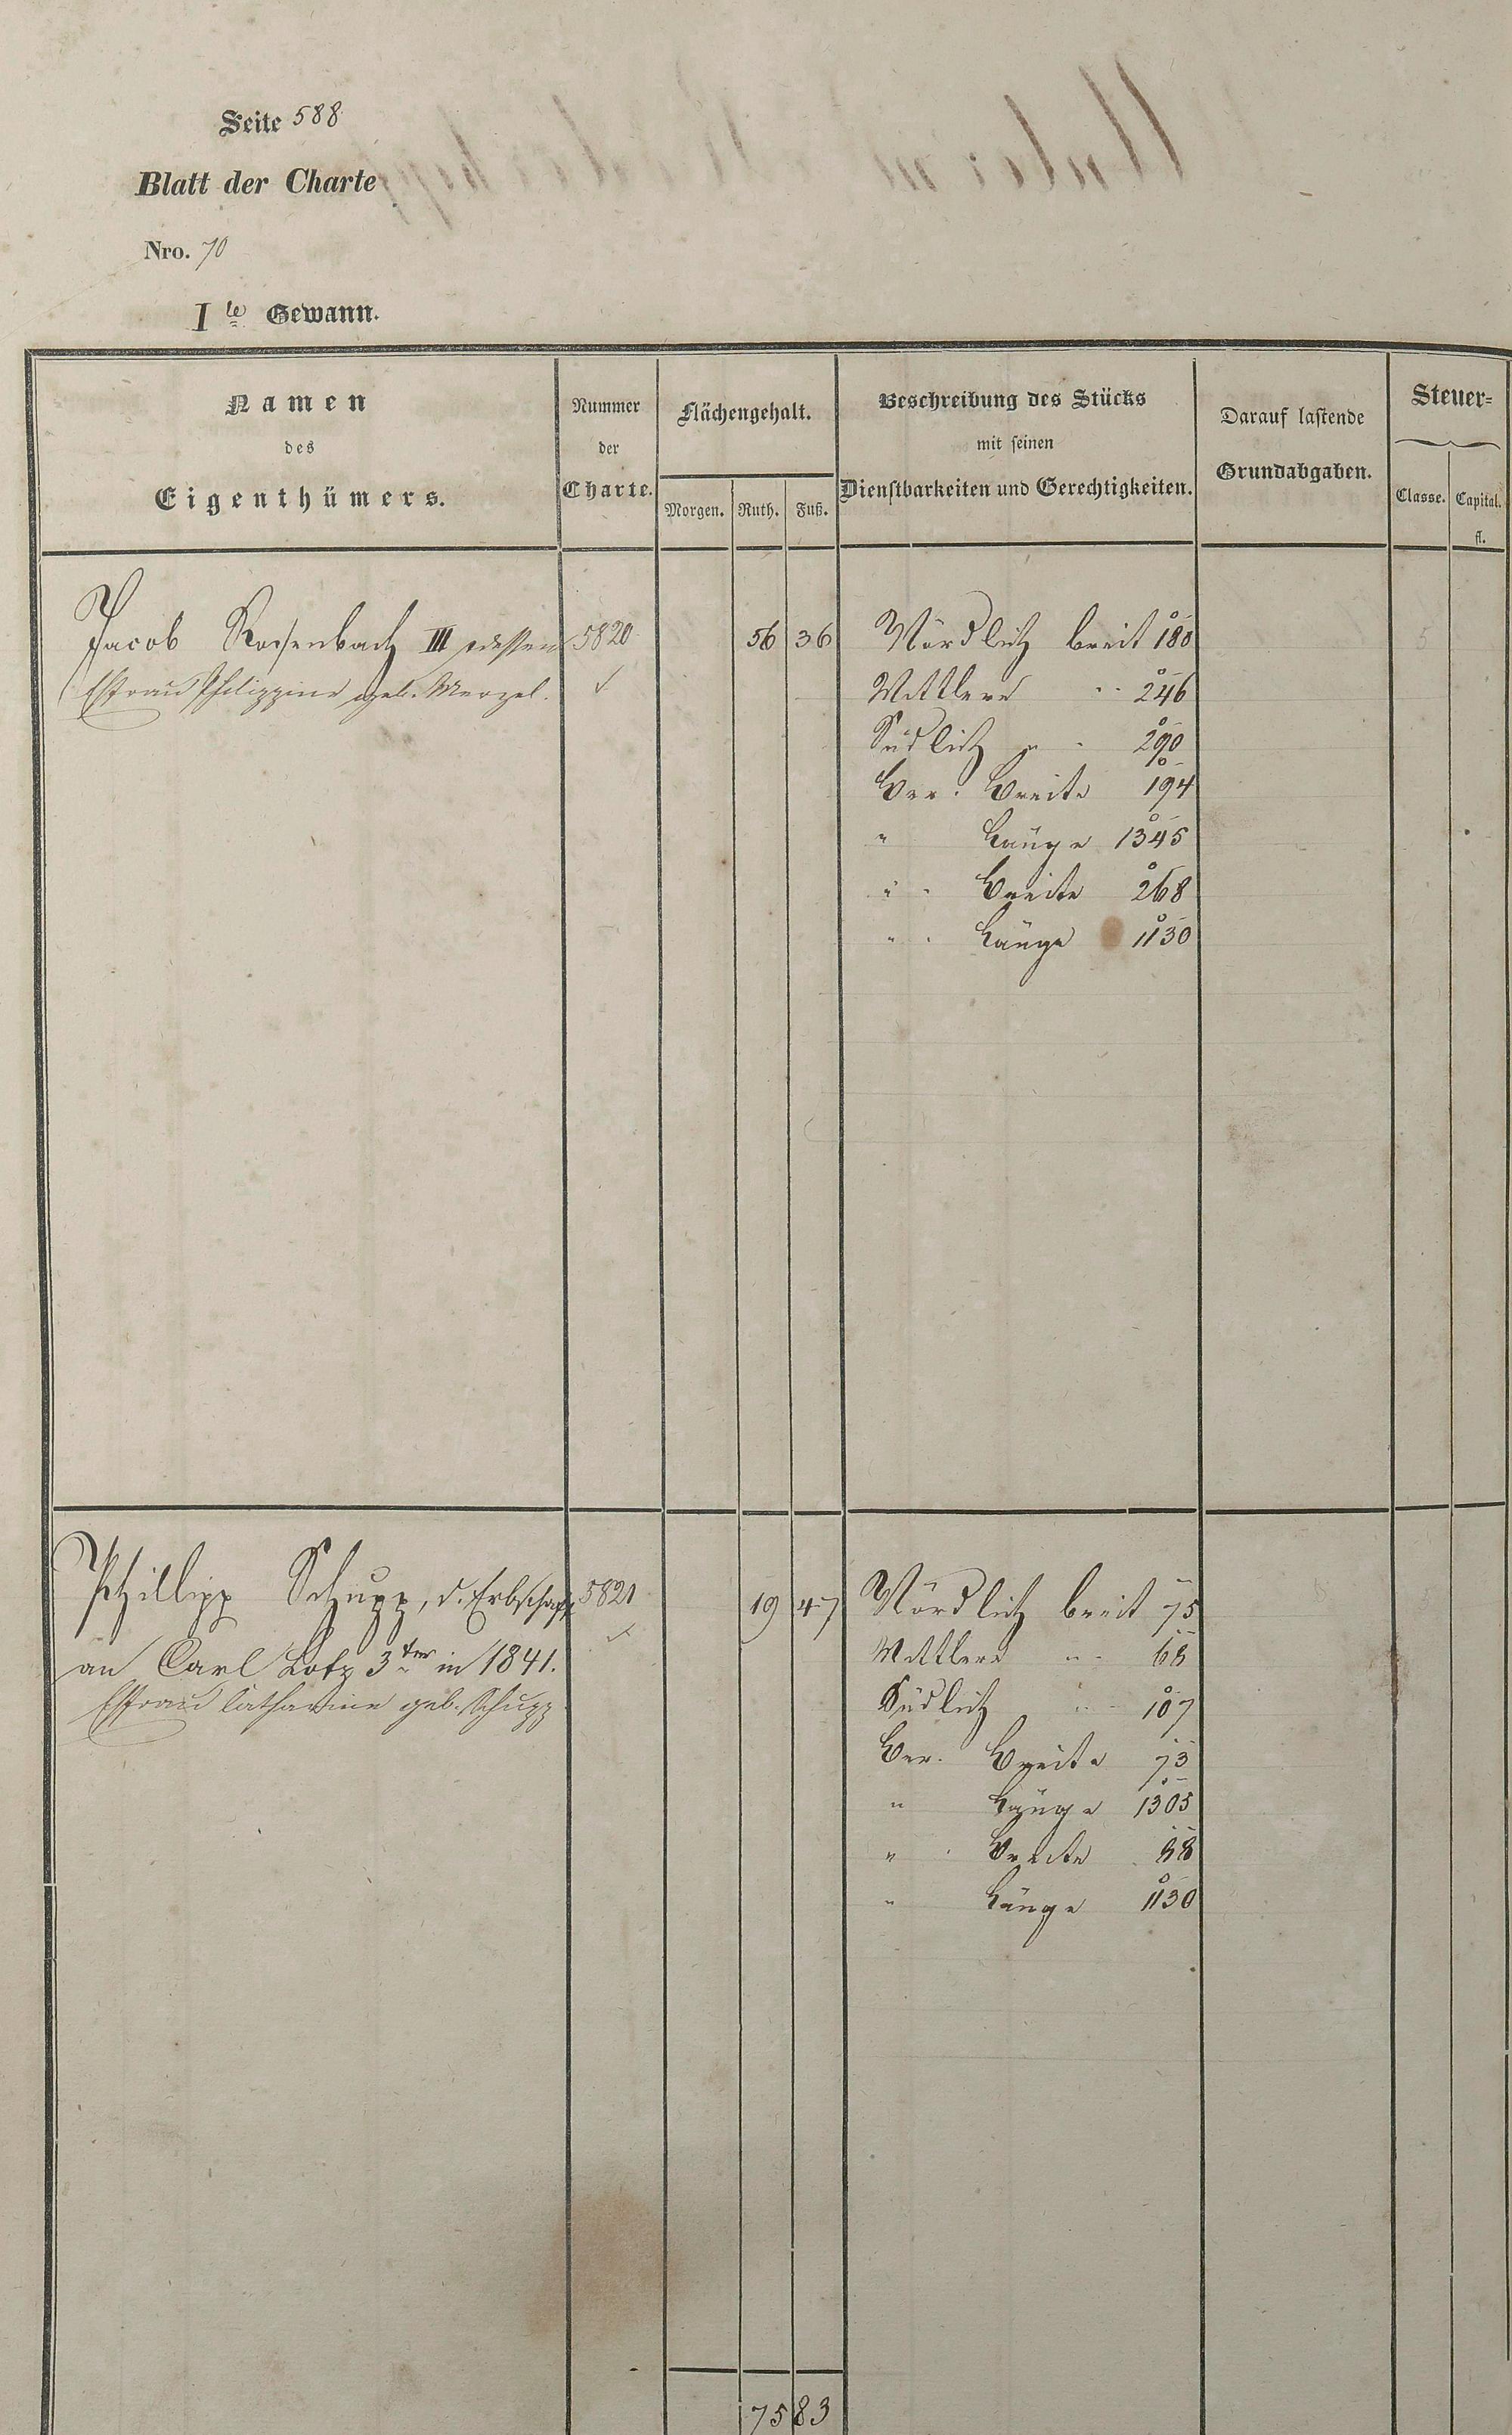 Seite 588
Blatt der Charte
Nro. 70
I te Gewann.
Namen des Eigenthümers.
Nummer der Charte.
Flächengehalt.
Morgen. Ruth. Fuß.
Beschreibung des Stücks
mit seinen
Dienstbarkeiten und Gerechtigkeiten.
Darauf lastende
Grundabgaben.
Steuer-
Classe. Capital.
fl.
Jacob Rossenbach III dessen 5820 56 36 Nördlich breit 180
Ehfrau Philippine geb. Menzel. Mittlere " 246
Südlich " 290
Ber. Breite 194
" Länge 1345
" Breite 268
" Länge 1130
Phillipp Schupp, d. Erbschaft 5821 19 47 Nördlich breit 75
an Carl Lotz 3ter in 1841. Mittlere " 68
Ehfrau Catharine geb. Schupp Südlich " 107
Ber. Breite 73
" Länge 1305
" Breite 88
" Länge 1130
75 83